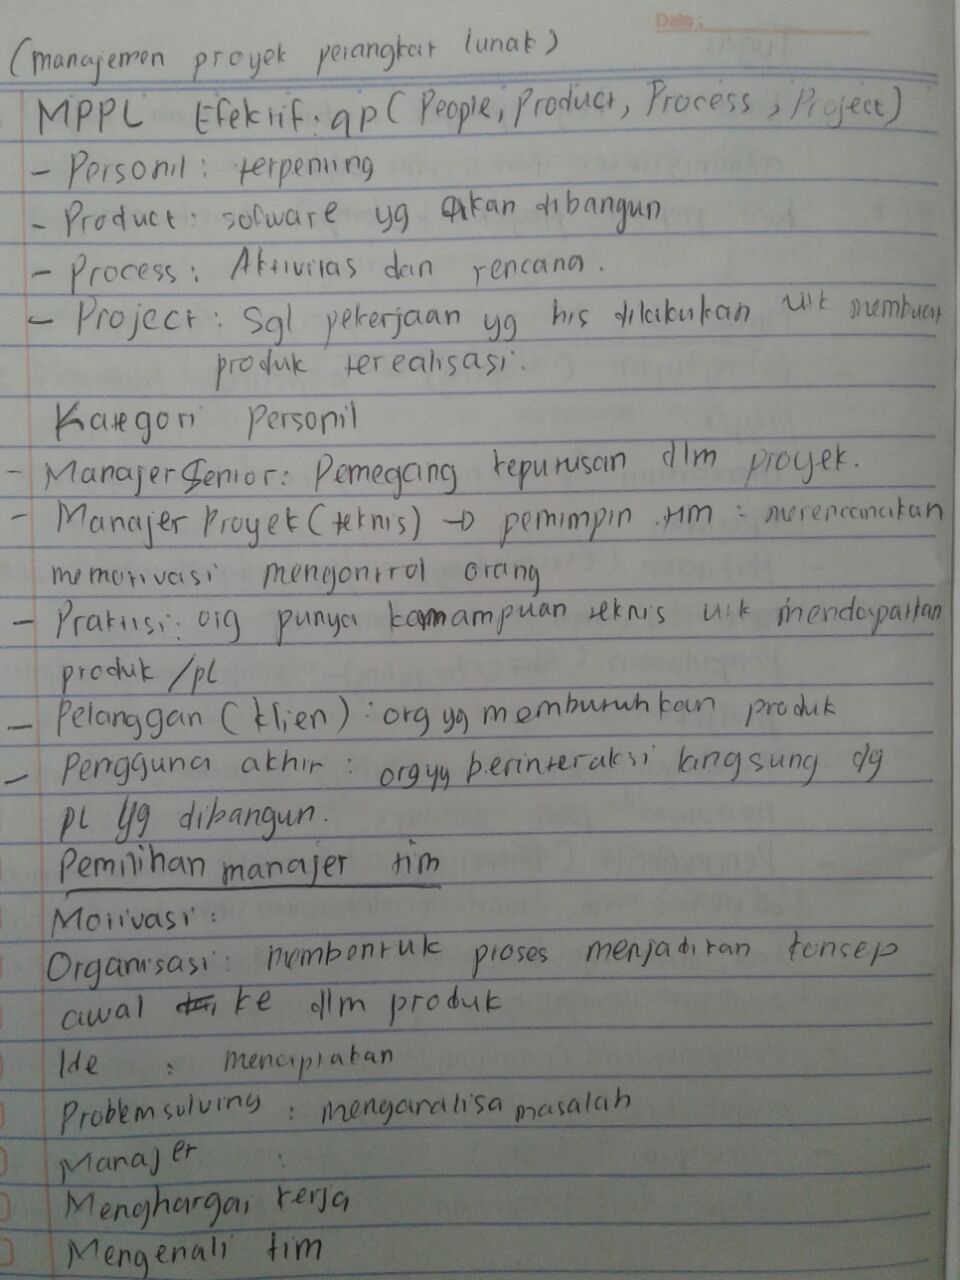 Date :
(manajemen proyek perangkat lunak)
MPPL Efektif : 4p (People, Product, Process, Project)
- Personil : terpenting
- Product : sofware yg akan dibangun
- Process : Aktivitas dan rencana.
- Project : Sgl pekerjaan yg hrs dilakukan utk membuat
produk terealisasi.
Kategori Personil
- Manajer Senior : Pemegang keputusan dlm proyek.
- Manajer Proyek (teknis) → pemimpin tim : merencanakan
memotivasi mengontrol orang
- Praktisi : org punya kamampuan teknis utk mendapatkan
produk / pl
- Pelanggan (klien) : org yg membutuhkan produk
- Pengguna akhir : org yg berinteraksi langsung dg
pl yg dibangun.
Pemilihan manajer tim
Motivasi :
Organisasi : membentuk proses menjadikan konsep
awal ke dlm produk
Ide : menciptakan
Problem solving : menganalisa masalah
Manajer :
Menghargai kerja
Mengenali tim